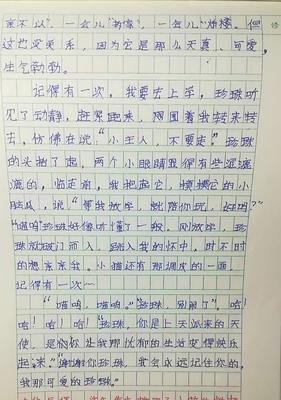 亲不以"，一会儿"撒谎"，一会儿"爬楼。但
这也没关系，因为它是那么天真、可爱，
生气勃勃。
记得有一次，我要去上学，珍珠听
见了动静，赶紧跑来，网围着我转来转
去，仿佛在说："小主人，不要走。"珍珠
的头抬了起，两个小眼睛显得有些泥漉
漉的，临走前，我把起它，摸摸它的小
脑袋，说"等我放学，就陪你玩，好吗？"
"喵呜"珍珠好像听懂了一般，刚放学，珍
珠就破门而入，跳入我的怀中，时不时
的想亲亲我。小猫还有那调皮的一面，
记得有一次~
"喵呜，喵呜。""珍珠，别闹了"。哈！
哈！哈！哈！"珍珠，你是上天派来的天
使，是你你让我那忧郁的生活变得快乐
起来。""谢谢你珍珠，我会永远记住你的，
我那可爱的珍珠。"